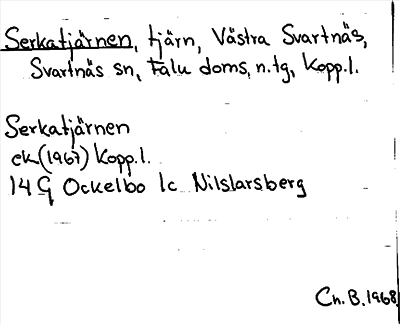 Serkatjärnen, tjärn, Västra Svartnäs,
Svartnäs sn, Falu doms. n.tg, Kopp.l.
Serkatjärnen
ek (1967) Kopp.l.
14 G Ockelbo 1c Nilslarsberg
Ch. B. 1968.